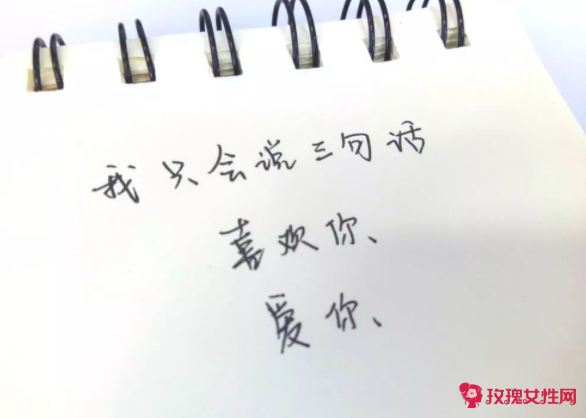 我只会说三句话
喜欢你、
爱你、
玫瑰女性网